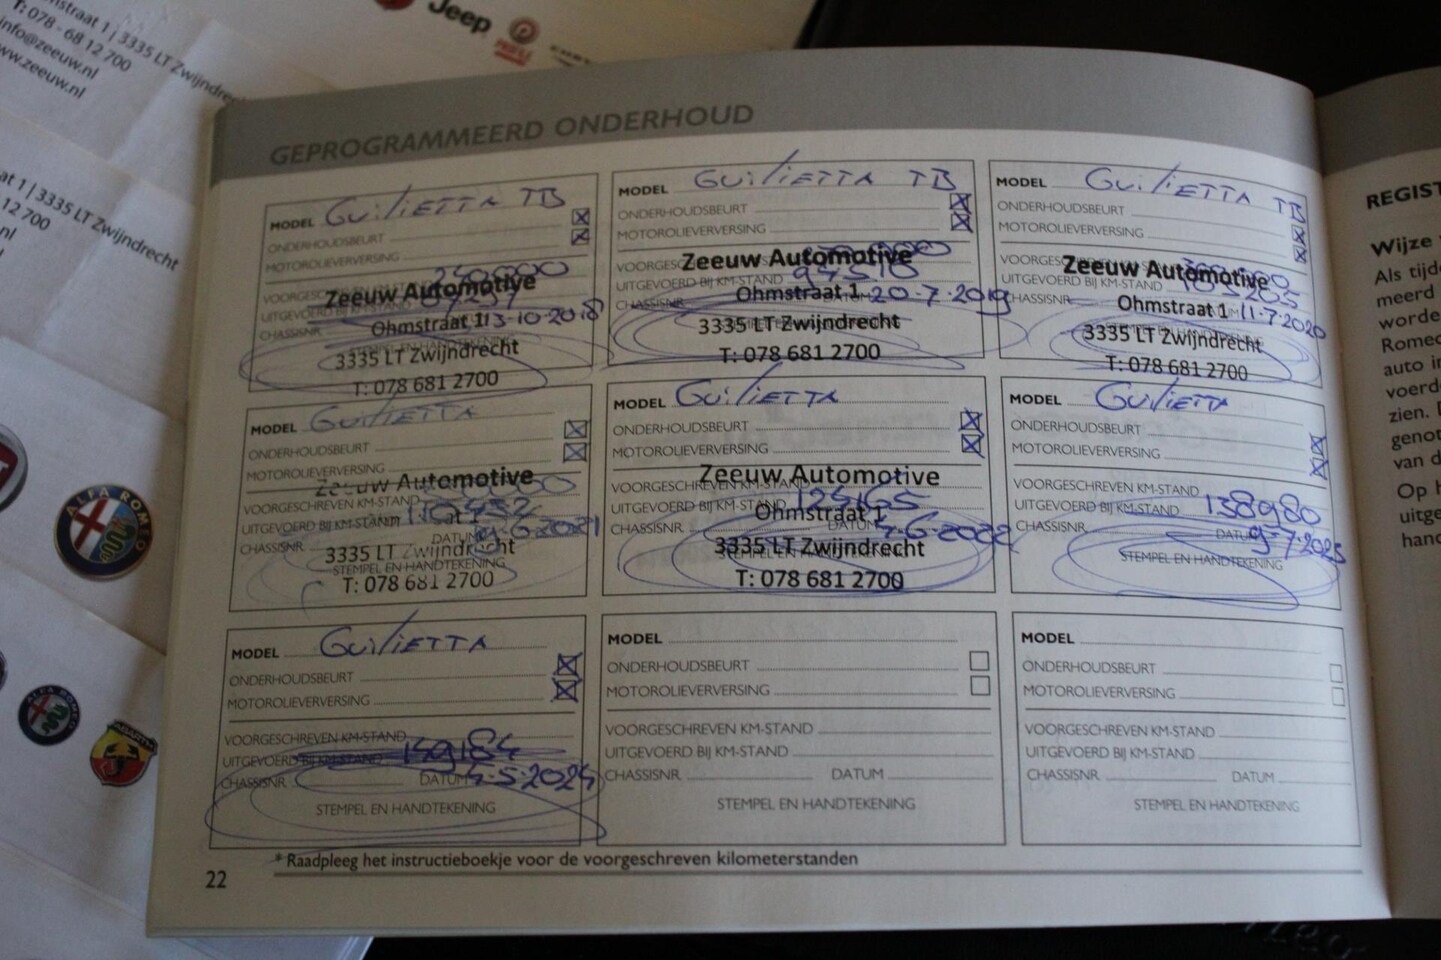 nstraat 1 | 3335 LT Zwijndrec
T: 078 - 68 12 700
info@zeeuw.nl
www.zeeuw.nl
Jeep
at 1 | 3335 LT Zwijndrecht
12 700
nl
ALFA ROMEO
ALFA ROMEO
ABARTH
GEPROGRAMMEERD ONDERHOUD
MODEL Guilietta TB
ONDERHOUDSBEURT
MOTOROLIEVERVERSING
250000
VOORGESCHREVEN KM-STAND
Zeeuw Automotive
UITGEVOERD BIJ KM-STAND
CHASSISNR.
Ohmstraat 1
13-10-2018
3335 LT Zwijndrecht
T: 078 681 2700
MODEL Guilietta TB
ONDERHOUDSBEURT
MOTOROLIEVERVERSING
Zeeuw Automotive
UITGEVOERD BIJ KM-STAND 94510
CHASSISNR.
Ohmstraat 1
20-7-2019
3335 LT Zwijndrecht
T: 078 681 2700
MODEL Guilietta TB
ONDERHOUDSBEURT
MOTOROLIEVERVERSING
Zeeuw Automotive
UITGEVOERD BIJ KM-STAND
CHASSISNR.
Ohmstraat 1
11-7-2020
3335 LT Zwijndrecht
T: 078 681 2700
MODEL Guilietta
ONDERHOUDSBEURT
MOTOROLIEVERVERSING
Zeeuw Automotive
VOORGESCHREVEN KM-STAND
UITGEVOERD BIJ KM-STAND 110432
CHASSISNR. DATUM
3335 LT Zwijndrecht
STEMPEL EN HANDTEKENING
T: 078 681 2700
MODEL Guilietta
ONDERHOUDSBEURT
MOTOROLIEVERVERSING
Zeeuw Automotive
VOORGESCHREVEN KM-STAND
UITGEVOERD BIJ KM-STAND 125165
Ohmstraat 1
CHASSISNR. DATUM 4-6-2022
3335 LT Zwijndrecht
STEMPEL EN HANDTEKENING
T: 078 681 2700
MODEL Guilietta
ONDERHOUDSBEURT
MOTOROLIEVERVERSING
VOORGESCHREVEN KM-STAND
UITGEVOERD BIJ KM-STAND 138980
CHASSISNR. DATUM
STEMPEL EN HANDTEKENING
MODEL Guilietta
ONDERHOUDSBEURT
MOTOROLIEVERVERSING
VOORGESCHREVEN KM-STAND
UITGEVOERD BIJ KM-STAND 149184
CHASSISNR. DATUM 4-5-2024
STEMPEL EN HANDTEKENING
MODEL
ONDERHOUDSBEURT
MOTOROLIEVERVERSING
VOORGESCHREVEN KM-STAND
UITGEVOERD BIJ KM-STAND
CHASSISNR. DATUM
STEMPEL EN HANDTEKENING
MODEL
ONDERHOUDSBEURT
MOTOROLIEVERVERSING
VOORGESCHREVEN KM-STAND
UITGEVOERD BIJ KM-STAND
CHASSISNR. DATUM
STEMPEL EN HANDTEKENING
* Raadpleeg het instructieboekje voor de voorgeschreven kilometerstanden
22
REGIST
Wijze
Als tijd
meerd
worde
Romeo
auto in
voerd
zien.
genot
van d
Op h
uitge
hand